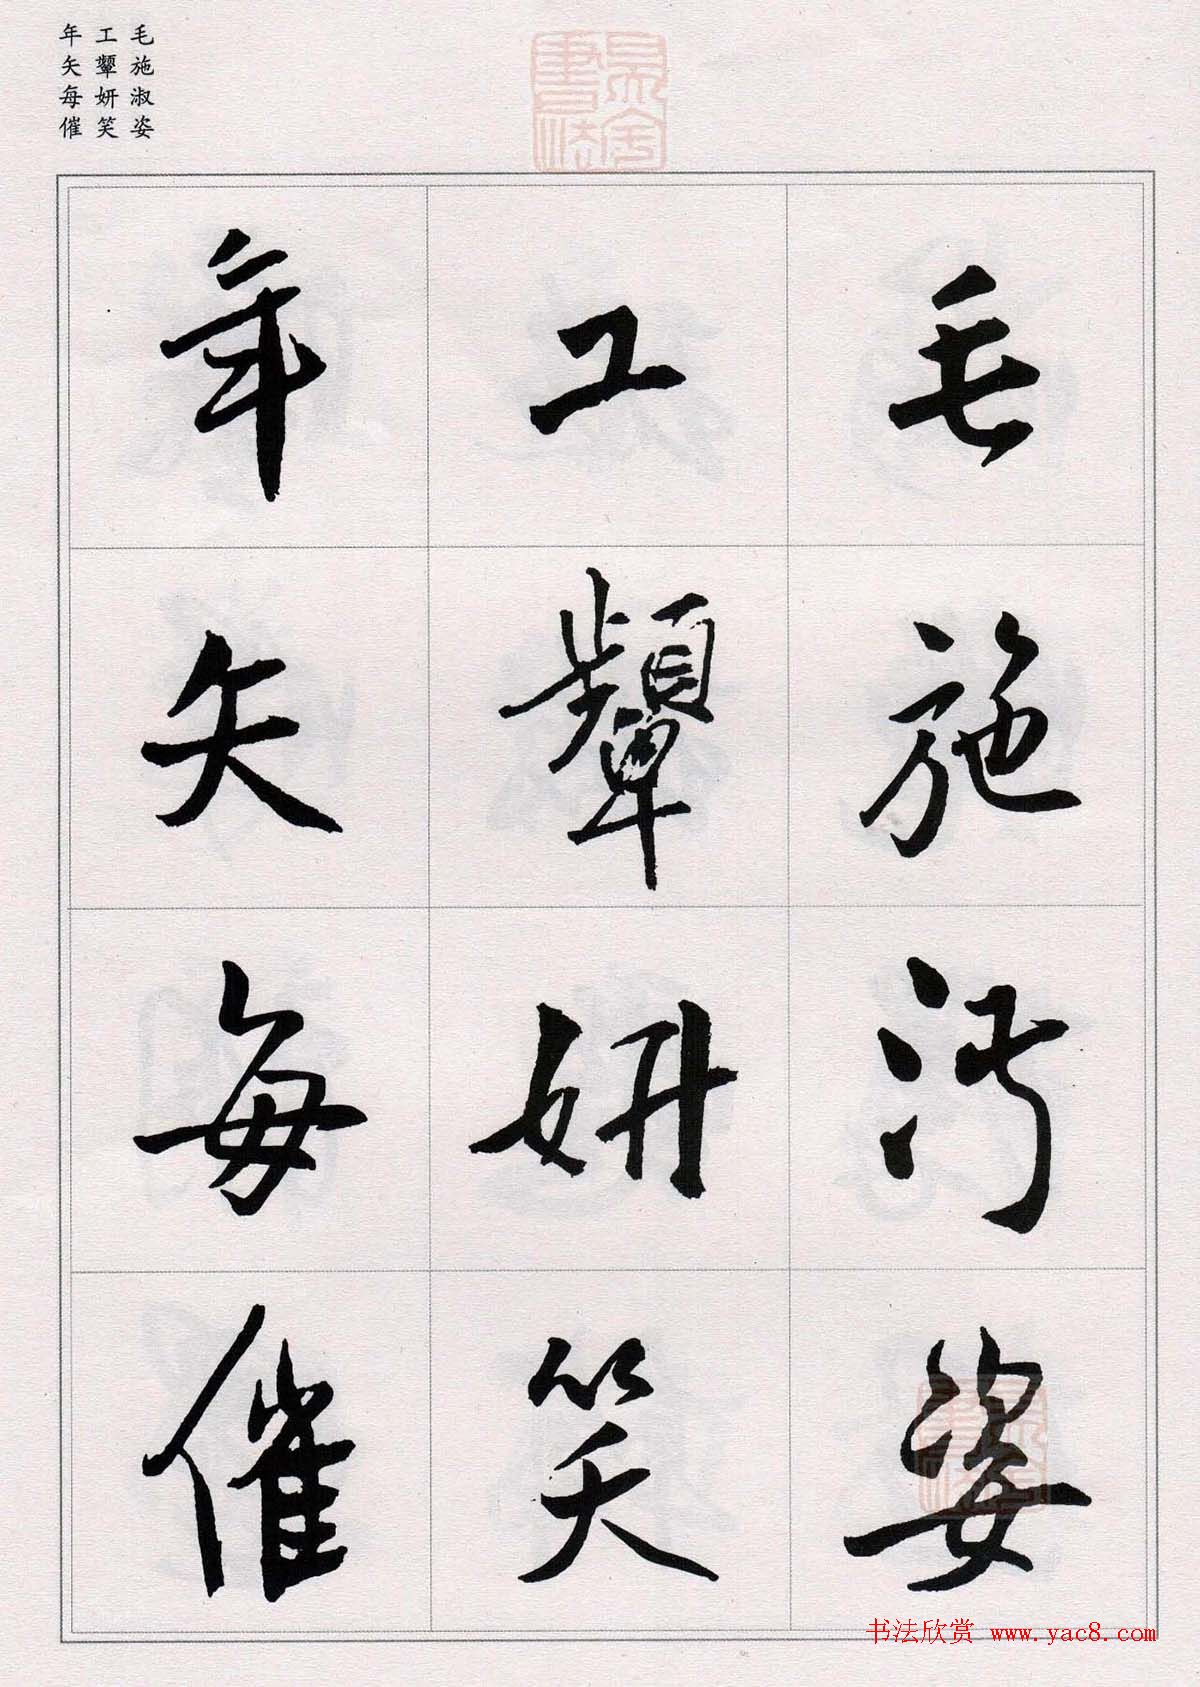 毛施淑姿
工顰妍笑
年矢每催
毛施淑姿
工顰妍笑
年矢每催
书法欣赏 www.yac8.com